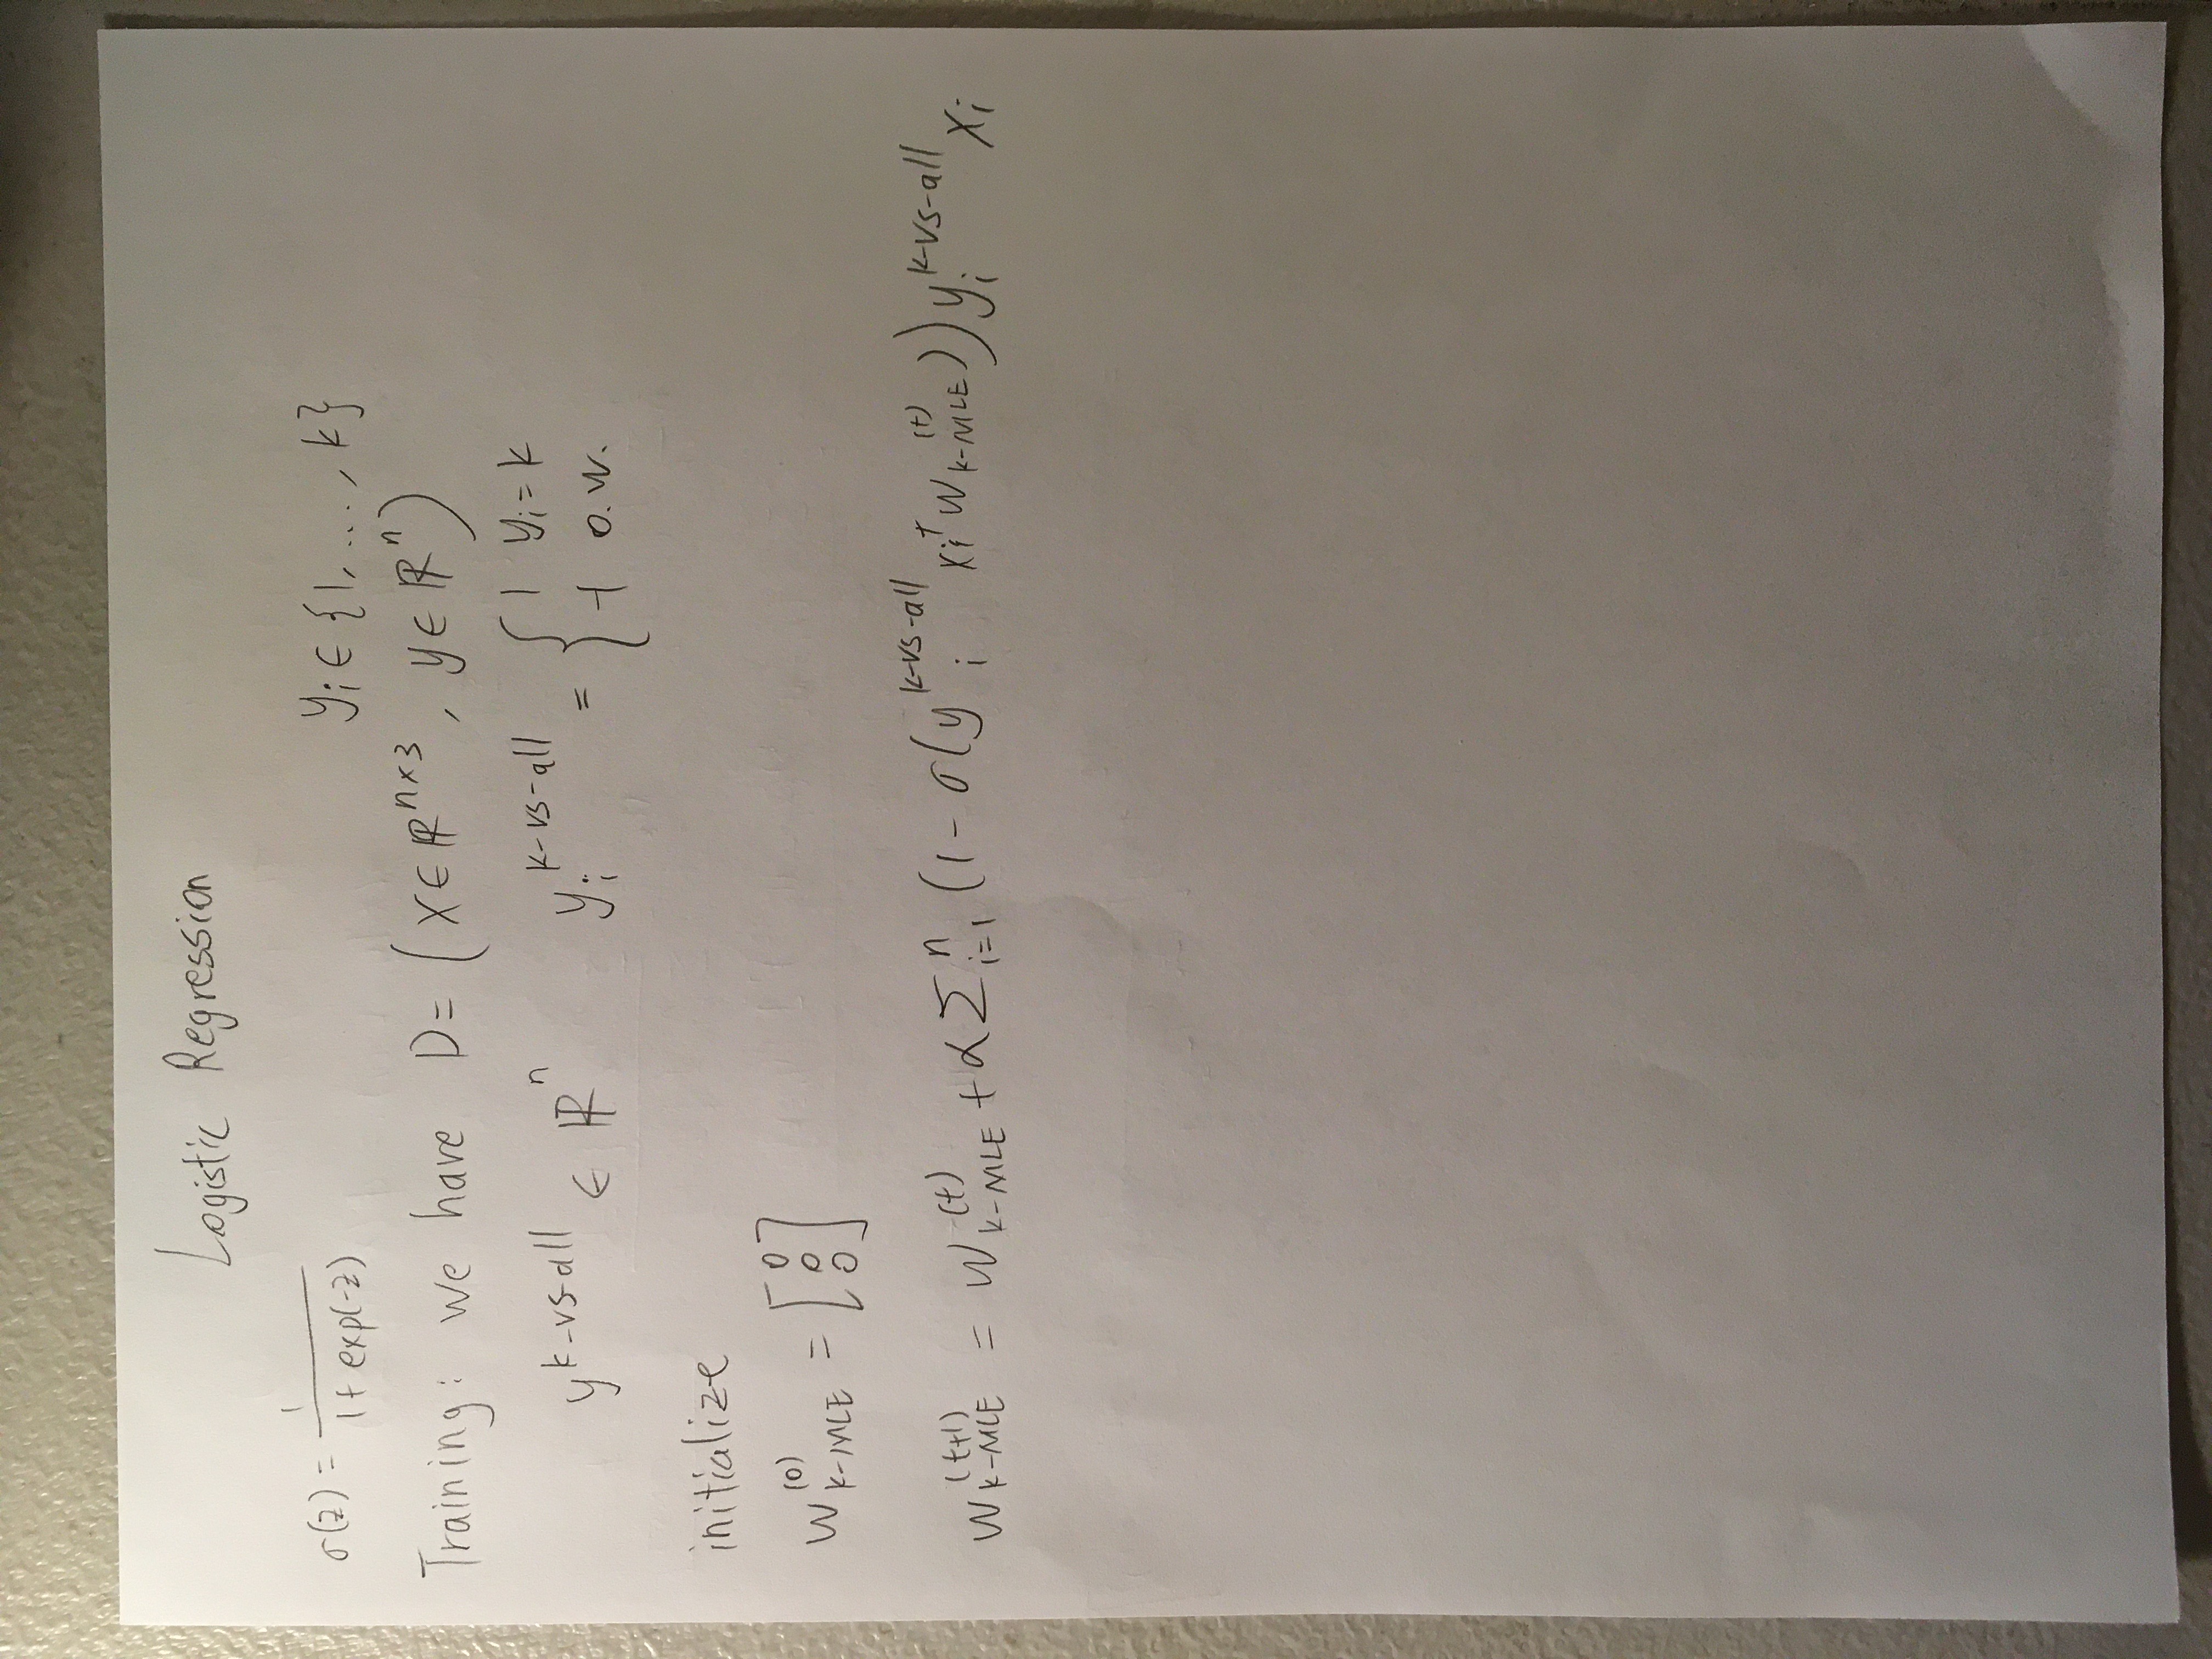 Logistic Regression
σ(z) = 1 / (1 + exp(-z))    yᵢ ∈ {1, ..., k}
Training: we have D = (X ∈ ℝⁿˣ³, y ∈ ℝⁿ)
y^{k-vs-all} ∈ ℝⁿ    yᵢ^{k-vs-all} = { 1 yᵢ = k
-1 o.w.
initialize
w_{k-MLE}^{(0)} = [0 0 0]
w_{k-MLE}^{(t+1)} = w_{k-MLE}^{(t)} + α Σ_{i=1}^{n} (1 - σ(yᵢ^{k-vs-all} xᵢ^T w_{k-MLE}^{(t)})) yᵢ^{k-vs-all} xᵢ